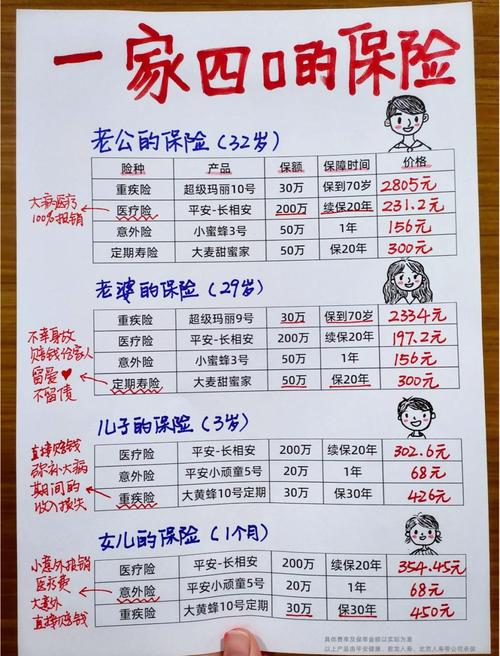 一家四口的保险
老公的保险(32岁)
险种 产品 保额 保障时间 价格
重疾险 超级玛丽10号 30万 保到70岁 2805元
医疗险 平安-长相安 200万 续保20年 231.2元
意外险 小蜜蜂3号 50万 1年 156元
定期寿险 大麦甜蜜家 50万 保20年 300元
大病医疗
100%报销
老婆的保险(29岁)
重疾险 超级玛丽9号 30万 保到70岁 2334元
医疗险 平安-长相安 200万 续保20年 197.2元
意外险 小蜜蜂3号 50万 1年 156元
定期寿险 大麦甜蜜家 50万 保20年 300元
不幸身故
赔钱给家人
留爱♥
不留债
儿子的保险(3岁)
医疗险 平安-长相安 200万 续保20年 302.6元
意外险 平安小顽童5号 20万 1年 68元
重疾险 大黄蜂10号定期 30万 保30年 426元
直接赔钱
弥补大病
期间的
收入损失
女儿的保险(1个月)
医疗险 平安-长相安 200万 续保20年 354.45元
意外险 平安小顽童5号 20万 1年 68元
重疾险 大黄蜂10号定期 30万 保30年 450元
小意外报销
医疗费
大意外
直接赔钱
具体费率及保单金额以实际为准
以上产品由平安健康、君龙人寿、北京人寿等公司承保